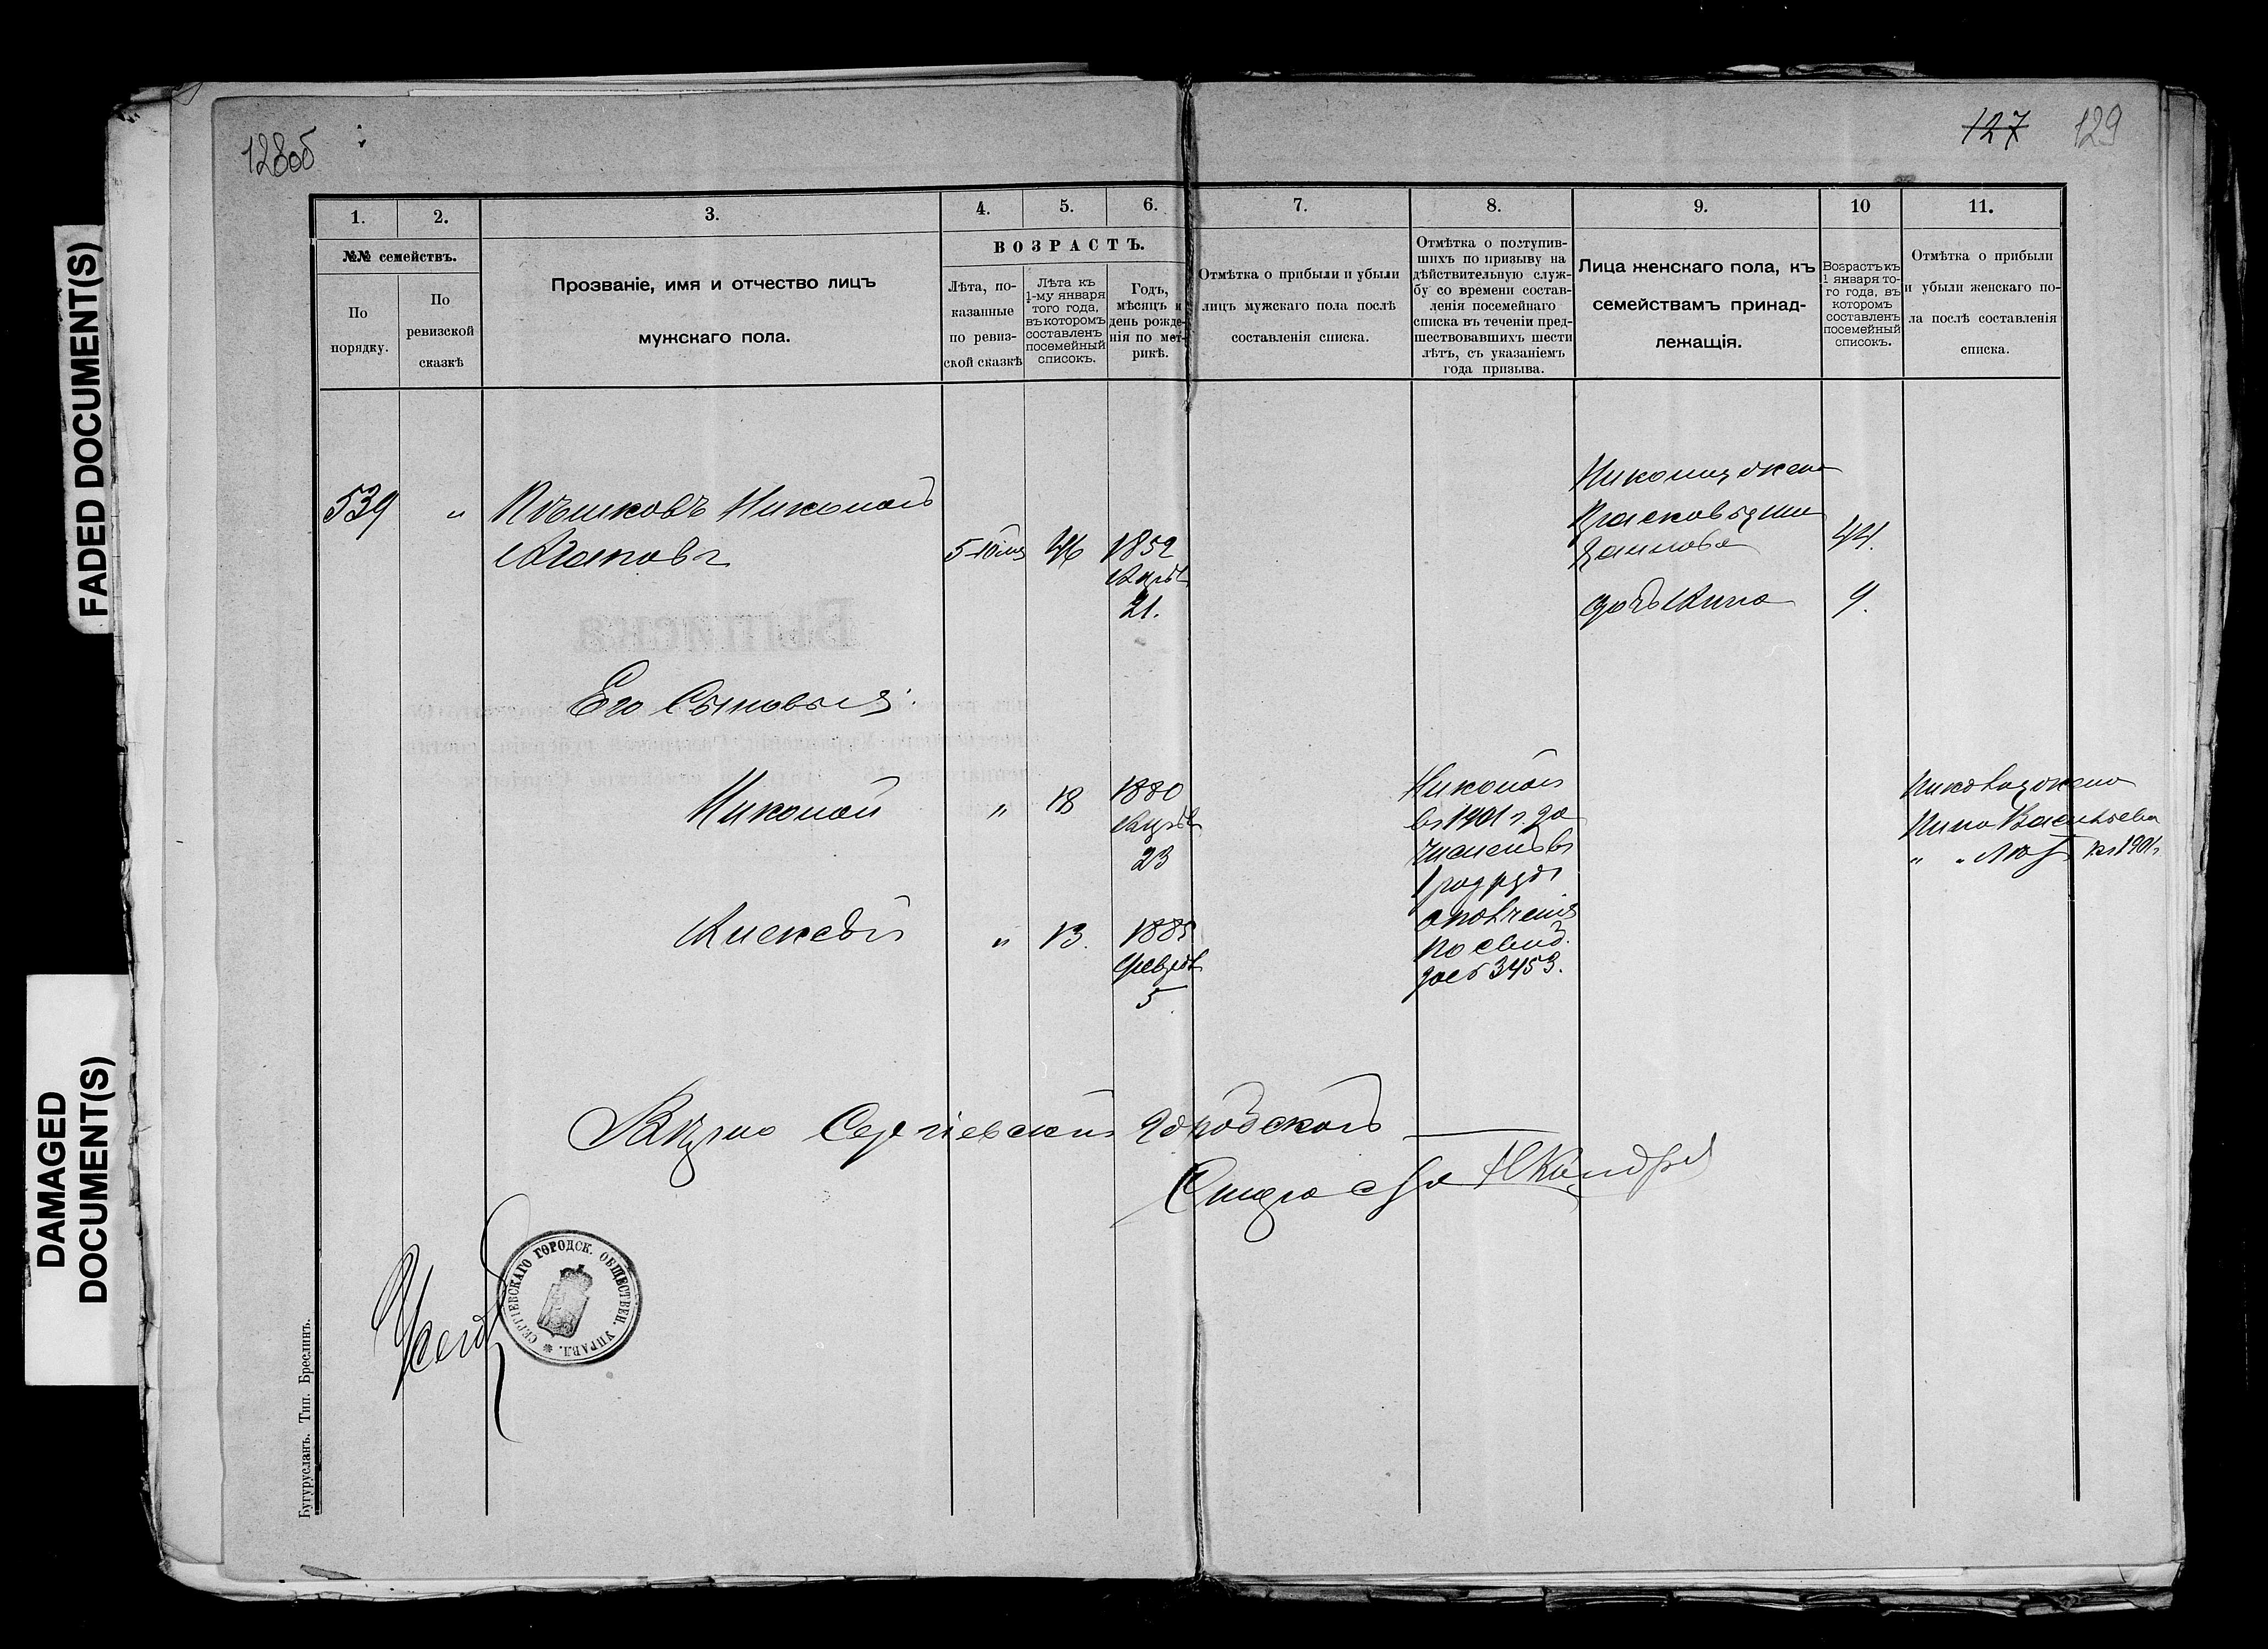 FADED DOCUMENT(S)
DAMAGED
DOCUMENT(S)
128об
127 129
1. 2. 3. 4. 5. 6. 7. 8. 9. 10 11.
№№ семействъ.
По
порядку.
По
ревизской
сказкѣ
Прозваніе, имя и отчество лицъ
мужскаго пола.
ВОЗРАСТЪ.
Лѣта, по-
казанные
по ревиз-
ской сказкѣ
Лѣта къ
1-му января
того года,
въ которомъ
составленъ
посемейный
списокъ.
Годъ,
мѣсяцъ и
день рожде-
нія по мет-
рикѣ.
Отмѣтка о прибыли и убыли
лицъ мужскаго пола послѣ
составленія списка.
Отмѣтка о поступив-
шихъ по призыву на
дѣйствительную служ-
бу со времени состав-
ленія посемейнаго
списка въ теченіи пред-
шествовавшихъ шести
лѣтъ, съ указаніемъ
года призыва.
Лица женскаго пола, къ
семействамъ принад-
лежащія.
Возрастъ къ
1 января то-
го года, въ
которомъ
составленъ
посемейный
списокъ.
Отмѣтка о прибыли
и убыли женскаго по-
ла послѣ составленія
списка.
539 " Пѣшковъ Николай
Агаповъ
46 1852
Апрѣл
21.
Николая жена
Прасковья
44.
дочь Анна 9.
Его Сыновья:
Николай " 18 1880
Апрѣл
23
Николай
въ 1901 г. за
численъ въ
1 разрядъ
ополченія
по свид.
3453.
Николая жена
Анна Васильева
" " 1901
Алексѣй " 13. 1885
Феврал
5
Вѣрно Сергіевскій Городской
Староста
СЕРГІЕВСКАГО ГОРОДСК. ОБЩЕСТВЕН. УПРАВЛ.
Бугурусланъ. Тип. Бреслинъ.